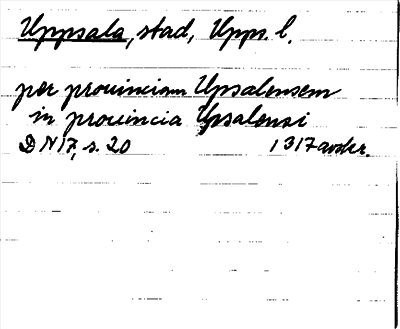 Uppsala, stad, Upps. l.
per prouinciam Upsalensem
in prouincia Upsalensi
DN 17, s. 20 1317 avskr.